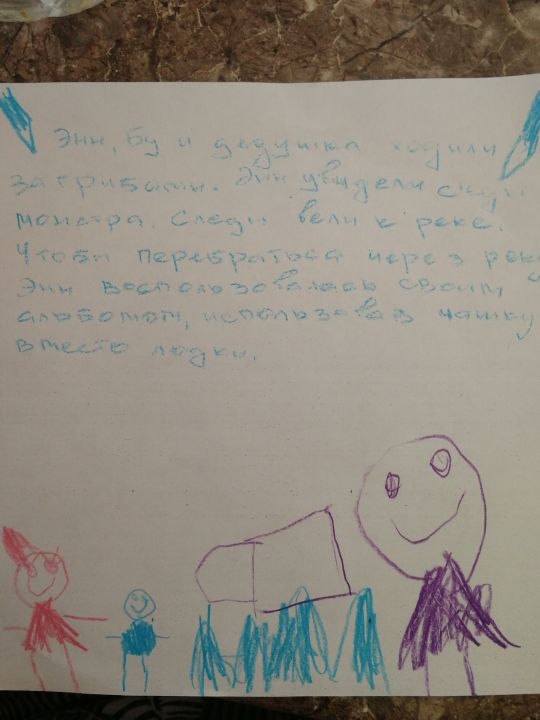 Энн, Бу и дедушка ходили
за грибами. Энн увидели следи
монстра. Следи вели к реке.
Чтоби перебраться через реку
Энн воспользовалась своим
альбомом, использовав чашку
вместо лодки.